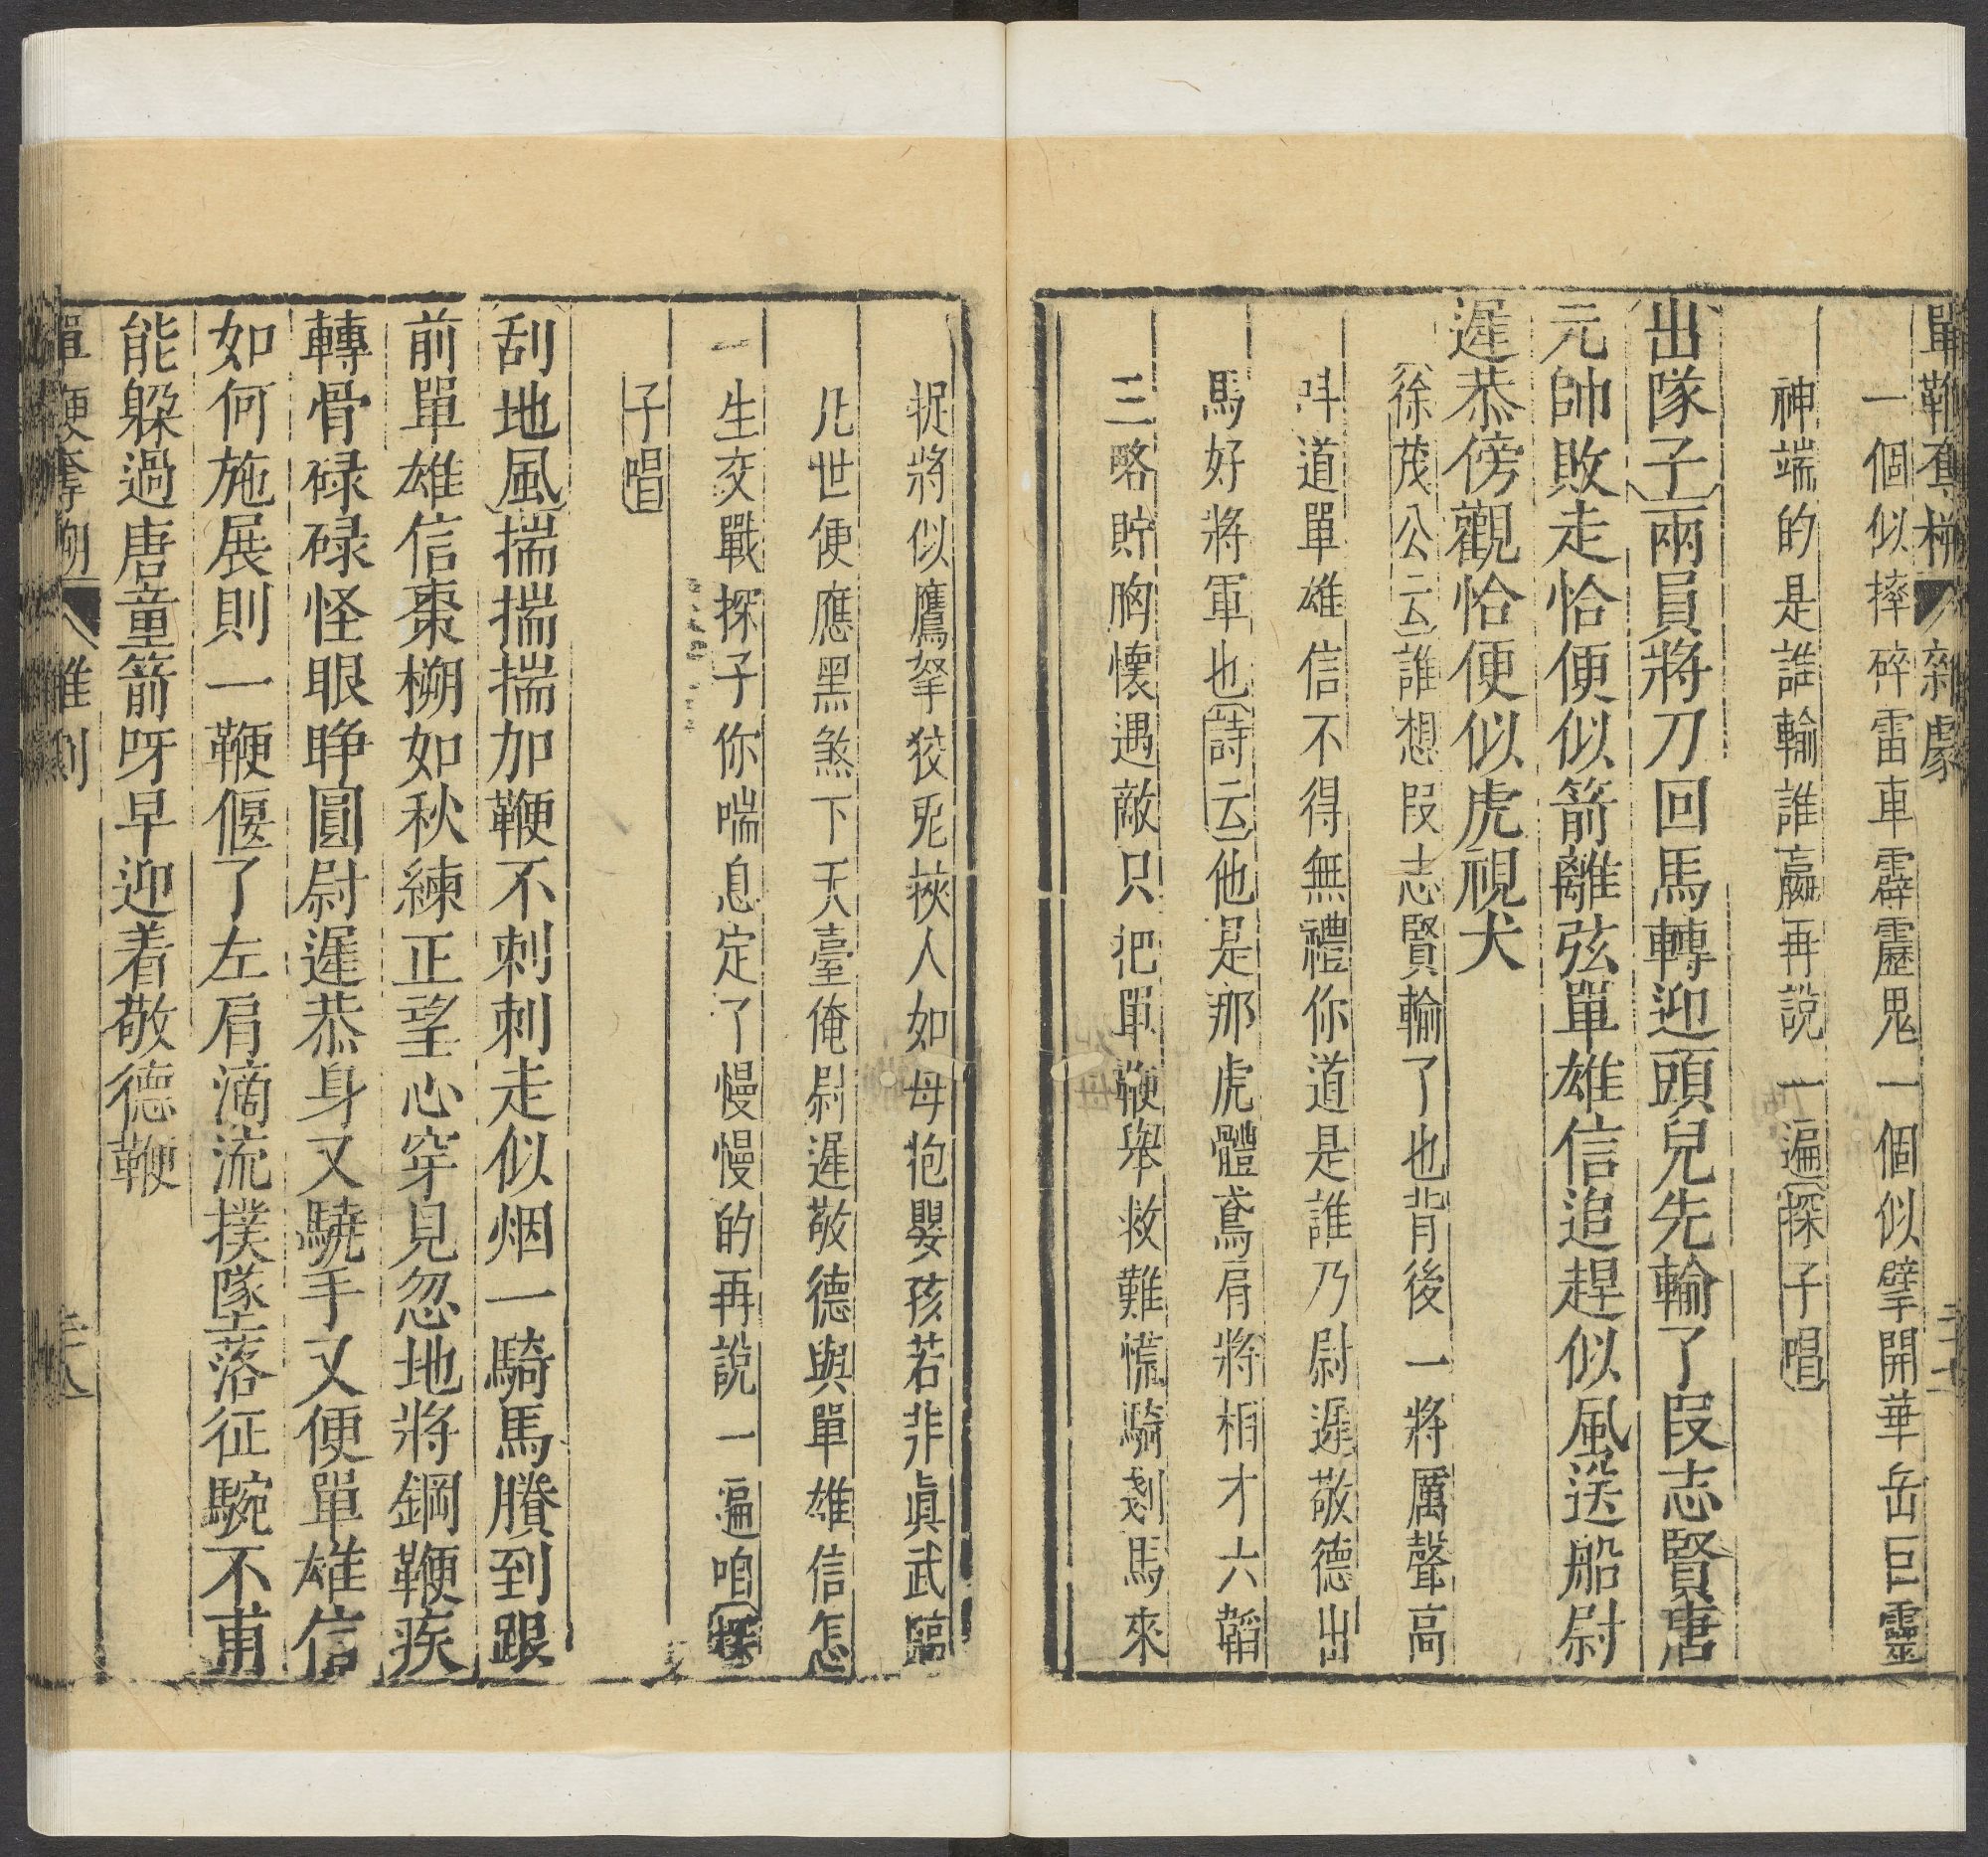 單鞭奪槊 雜劇 二十七
一個似摔碎雷車霹靂鬼一個似擘開華岳巨靈
神端的是誰輸誰羸再說一遍〔探子唱〕
〔出隊子〕兩員將刀回馬轉迎頭兒先輸了叚志賢唐
元帥敗走恰便似箭離弦單雄信追趕似風送船尉
遲恭傍觀恰便似虎視犬
〔徐茂公云〕誰想叚志賢輸了也背後一將厲聲高
呌道單雄信不得無禮你道是誰乃尉遲敬德出
馬好將軍也〔詩云〕他是那虎體鳶肩將相才六韜
三略貯胸懷遇敵只把單鞭舉救難慌騎剗馬來
捉將似鷹拏狡兎挾人如母抱嬰孩若非眞武臨
凡世便應黑煞下天臺俺尉遲敬德與單雄信怎
生交戰探子你喘息定了慢慢的再說一遍咱〔探
子唱〕
〔刮地風〕揣揣揣加鞭不刺刺走似烟一騎馬騰到跟
前單雄信棗槊如秋練正望心穿見忽地將鋼鞭疾
轉骨碌碌怪眼睜圓尉遲恭身又驍手又便單雄信
如何施展則一鞭偃了左肩滴流撲墜落征騕不甫
能躱過唐童箭呀早迎着敬德鞭
單鞭奪槊 雜劇 二十八